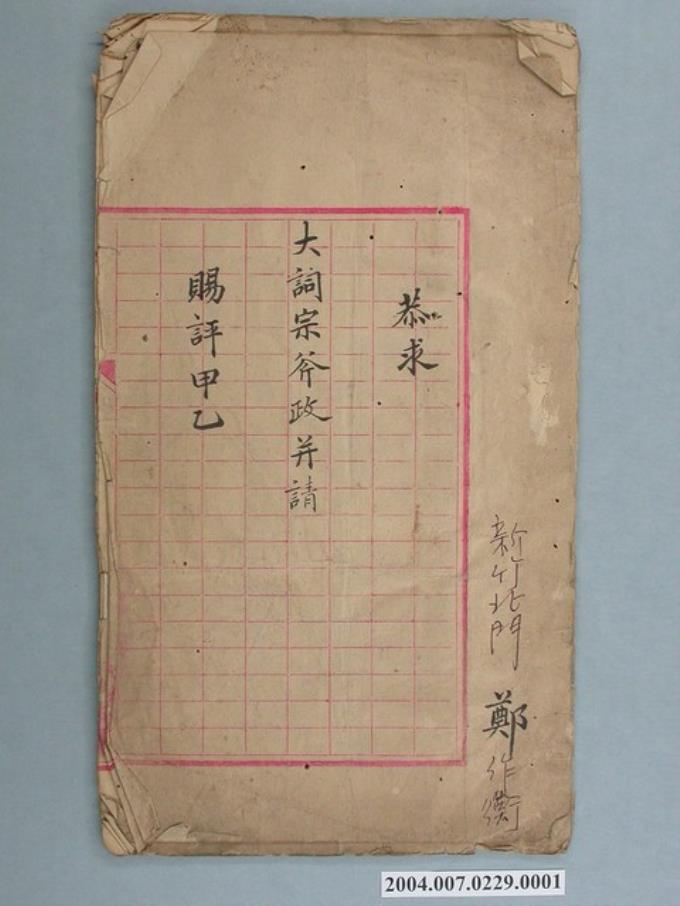 恭求
大詞宗斧政并請
賜評甲乙
新竹北門 鄭作衡
2004.007.0229.0001